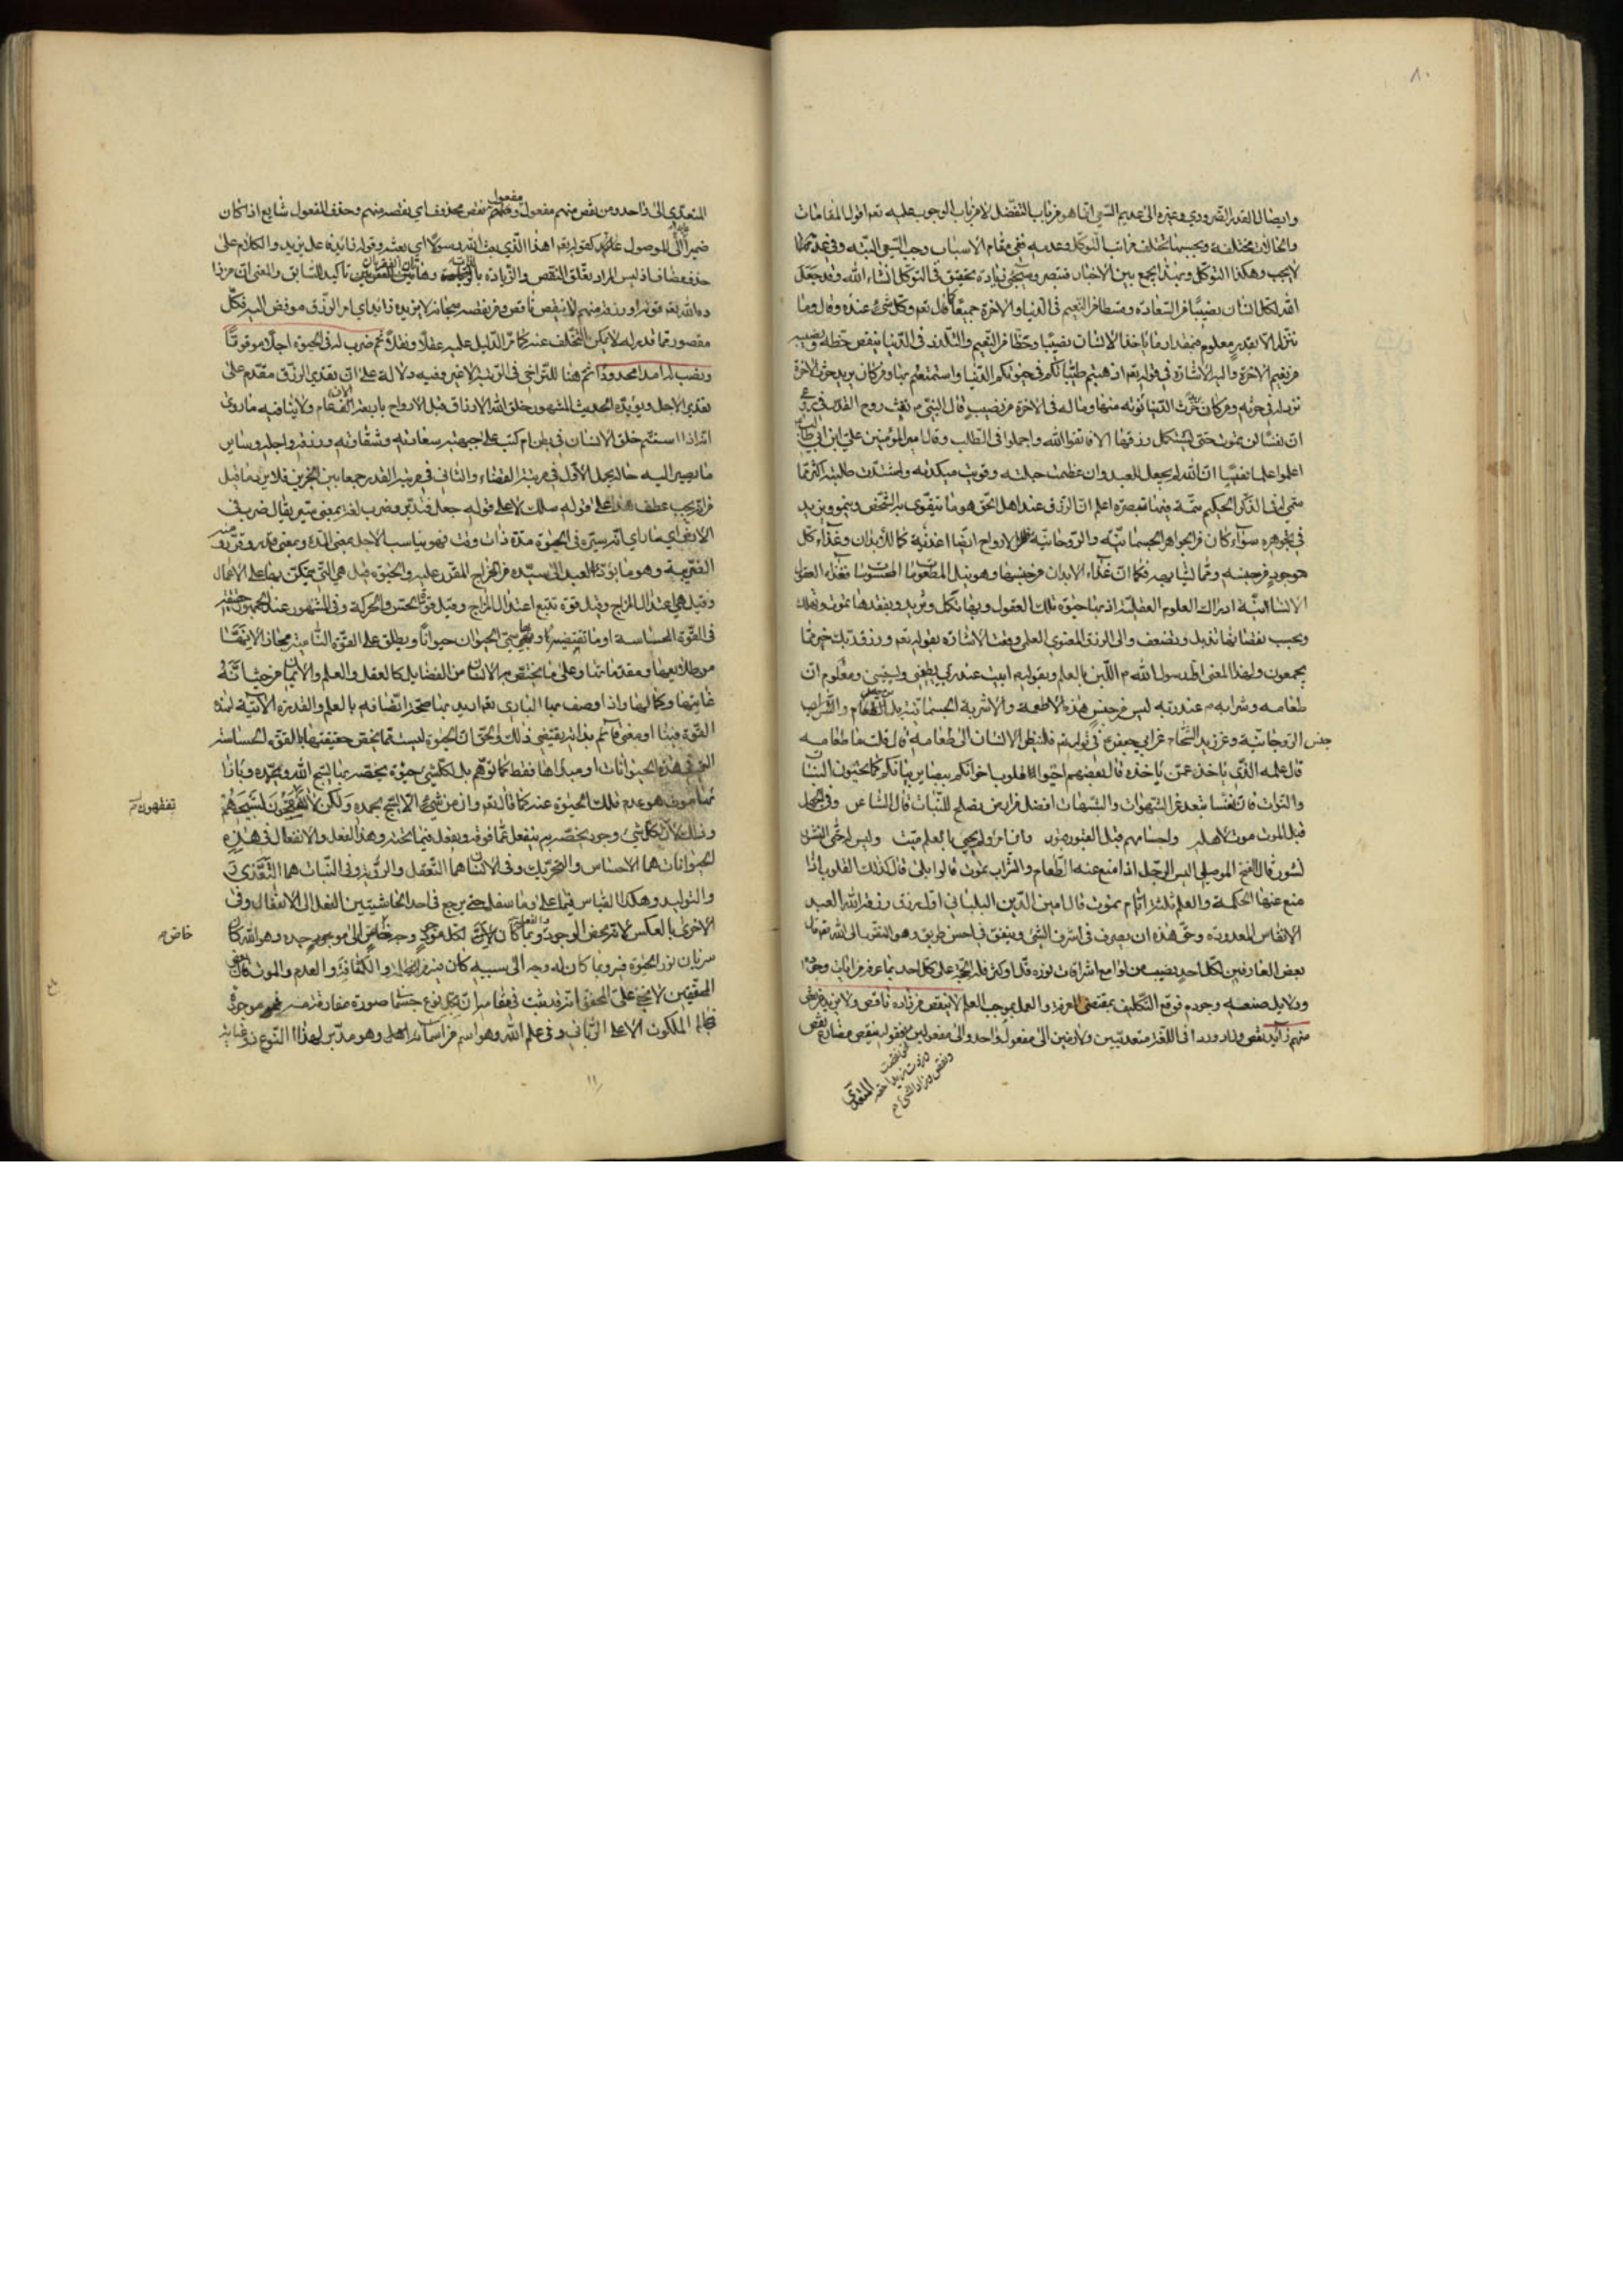 ٨٠
وايصال القدر الضروري وغيره الى عديم السعي انما هو من باب التفضل لا من باب الوجوب عليه نعم اقول المقامات
والحالات مختلفة وبحسبها تختلف مراتب التوكل وعدمه ففي مقام الاسباب وجب السعي اليه وفي عدمها
لا يجب وهكذا التوكل وبهذا يجمع بين الاخبار فتبصر وسيجئ زيادة تحقيق في التوكل انشاء الله وقد جعل
الله لكل انسان نصيبا من السعادة وقسطا من النعيم في الدنيا والاخرة جميعا كما قال تعم وكل شئ عنده وقال وما
ننزله الا بقدر معلوم فبمقدار ما ياخذ الانسان نصيبا وحظا من النعيم والتلذذ في الدنيا ينقص حظه ونصيبه
من نعيم الاخرة واليه الاشارة في قوله تعم اذهبتم طيباتكم في حيوتكم الدنيا واستمتعتم بها ومن كان يريد حرث الاخرة
نزد له في حرثه ومن كان يريد حرث الدنيا نؤته منها وما له في الاخرة من نصيب قال النبي م نفث روح القدس في روعي
ان نفسا لن تموت حتى تستكمل رزقها الا فاتقوا الله واجملوا في الطلب وقال امير المؤمنين علي ابن ابي طالب
اعلموا علما يقينا ان الله لم يجعل للعبد وان عظمت حيلته وقويت مكيدته واشتدت طلبته اكثر مما
سمي له في الذكر الحكيم تتمة فيها تبصرة اعلم ان الرزق عند اهل الحق هو ما يتقوى به الشخص وينمو ويزيد
في جوهره سواء كان من الجواهر الجسمانية والروحانية فللارواح ايضا اغذية كما للابدان وغذاء كل
موجود من جنسه ومما يشابهه فكما ان غذاء الابدان من جنسها وهو نيل المطعومات المحسوسات فغذاء العقول
الانسانية ادراك العلوم العقلية اذ بها حيوة تلك العقول وبها تكمل وتزيد وبفقدها تموت وتهلك
وبحسب نقصانها تذبل وتضعف والى الرزق المعنوي العلمي وقعت الاشارة بقوله تعم ورزق ربك خير مما
يجمعون ولهذا المعنى اول رسول الله م اللبن بالعلم وبقوله م ابيت عند ربي يطعمني ويسقيني ومعلوم ان
طعامه وشرابه م عند ربه ليس من جنس هذه الاطعمة والاشربة الجسمانية بل من جنس الطعام والشراب
الروحانية وعن زيد الشحام عن ابي جعفر ع في قوله تعم فلينظر الانسان الى طعامه قال قلت ما طعامه
قال علمه الذي ياخذه عمن ياخذه قال بعضهم احيوا قلوب اخوانكم ببيانكم كما تحيون النبات
والنوات فان نفسا تبعد عن الشهوات والشبهات افضل من ارض تصلح للنبات قال الشاعر وفي الجهل
قبل الموت موت لاهله واجسامهم قبل القبور قبور وان امرا لم يحي بالعلم ميت وليس له حتى النشور
نشور قال الفتح الموصلي اليس الرجل اذا منع عنه الطعام والشراب يموت قالوا بلى قال كذلك القلوب اذا
منع عنها الحكمة والعلم ثلثة ايام يموت قال امين الدين البلياني اول رزق رزقه الله العبد
الانفاس المعدودة وحق هذه ان يصرف في اشرف الشئ وينفق في احسن طريق وهو التقرب الى الله تعم قال
بعض العارفين لكل احد نصيب من لوامع اشراقات نوره قل او كثر فله الحجة على كل احد بما عرف من ايات وجوده
ودلايل صنعه وجوده فوقع التكليف بمقتضى المعرفة والعمل بموجب العلم لا ينقص من زاده ناقص ولا يزيد من نقص
منهم زايد نقص وزاد وردا في اللغة متعديين ولازمين الى مفعول واحد والى مفعولين فقوله ينقص مضارع نقص
المتعدي
المتعدي الى واحد ومن نقص منهم مفعوله ومفعول نقص محذوف اي نقصه منهم وحذف المفعول شايع اذا كان
ضميرا عايدا الى الموصول كقوله تعم اهذا الذي بعث الله رسولا اي بعثه وقوله زايد فاعل يزيد والكلام على
حذف مضاف اذ ليس المراد تعلق النقص والزيادة بالذات وهاتان الفقرتان تاكيد للسابق والمعنى ان من زا
ده الله تعم قوتا ورزقا منهم لا ينقصه ناقص ومن نقصه سبحانه لا يزيده زايد اي امر الرزق مفوض اليه فكل
مقصور بما قدر له لا يمكن التخلف عنه كما مر الدليل عليه عقلا ونقلا ثم ضرب له في الحيوة اجلا موقوتا
ونصب له امدا محدودا ثم هنا للتراخي في الرتبة لا غير وفيه دلالة على ان تقدير الرزق مقدم على
تقدير الاجل ويؤيده الحديث المشهور خلق الله الارزاق قبل الارواح باربعة الاف عام ولا ينافيه ما روي
انه اذا استتم خلق الانسان في بطن ام كتب على جبهته سعادته وشقاوته ورزقه واجله وساير
ما يصير اليه حاله يحمل الاول في مرتبة القضاء والثاني في مرتبة القدر جمعا بين الخبرين فلا يرد ما قيل
من انه يجب عطف هذا على قوله سلك لا على قوله جعل فتدبر وضرب لغة بمعنى سير يقال ضرب في
الارض اي سار اي انه سيره في الحيوة مدة ذات وقت فهو يناسب الاجل بمعنى المدة وبمعنى قدر وقرر ومنه
الضريبة وهو ما يؤدي العبد الى سيده من الخراج المقرر عليه والحيوة قيل هي التي يتمكن بها على الاعمال
وقيل هي اعتدال المزاج وقيل قوة تتبع اعتدال المزاج وقيل قوة الحس والحركة وفي المشهور عند الجمهور حقيقة
في القوة الحساسة او ما تقتضيها وبها سمي الحيوان حيوانا ويطلق على القوة النامية مجازا لانها
من طلايعها ومقدماتها وعلى ما يختص به الانسان من الفضايل كالعقل والعلم والايمان من حيث انه
غايتها وكمالها واذا وصف بها الباري تعم اريد بها صحة اتصافه بالعلم والقدرة اللازمة لهذه
القوة فينا او معنى قائم بذاته يقتضي ذلك والحق ان الحيوة ليست مما يختص حقيقتها بالقوة الحساسة
التي في هذه الحيوانات او مبداها فقط كما توهم بل لكل شئ حيوة يختصه بها يسبح الله ويمجده وبازا
ئها موت هو عدم تلك الحيوة عنه كما قال تعم وان من شئ الا يسبح بحمده ولكن لا تفقهون تسبيحهم
تفقهون
وذلك لان لكل شئ وجود يخصه به ينفعل عما فوقه ويفعل فيما تحته وهذا الفعل والانفعال في هذه
الحيوانات هما الاحساس والتحريك وفي الانسان هما التعقل والروية وفي النبات هما التغذي
والتوليد وهكذا القياس فيما علا وما سفل حتى يرجع في احد الحاشيتين الفعل الى الانفعال وفي
الاخرى بالعكس لانه محض الوجود والفعل وكما ان لكل موجود وجه خاص الى موجده وهو الله كان
خاص
سريان نور الحيوة فيه وبما كان له وجه الى سببه كان فيه والكثافة والعدم والموت قال بعض
المحققين لا يخفى على المحقق انه قد ثبت في مقامه ان لكل نوع جسماني صورة مفارقة موجودة
في عالم الملكوت الاعلى الرباني وفي علم الله وهو اسم من اسمائه وهو مدبر لهذا النوع ذو عناية
١١